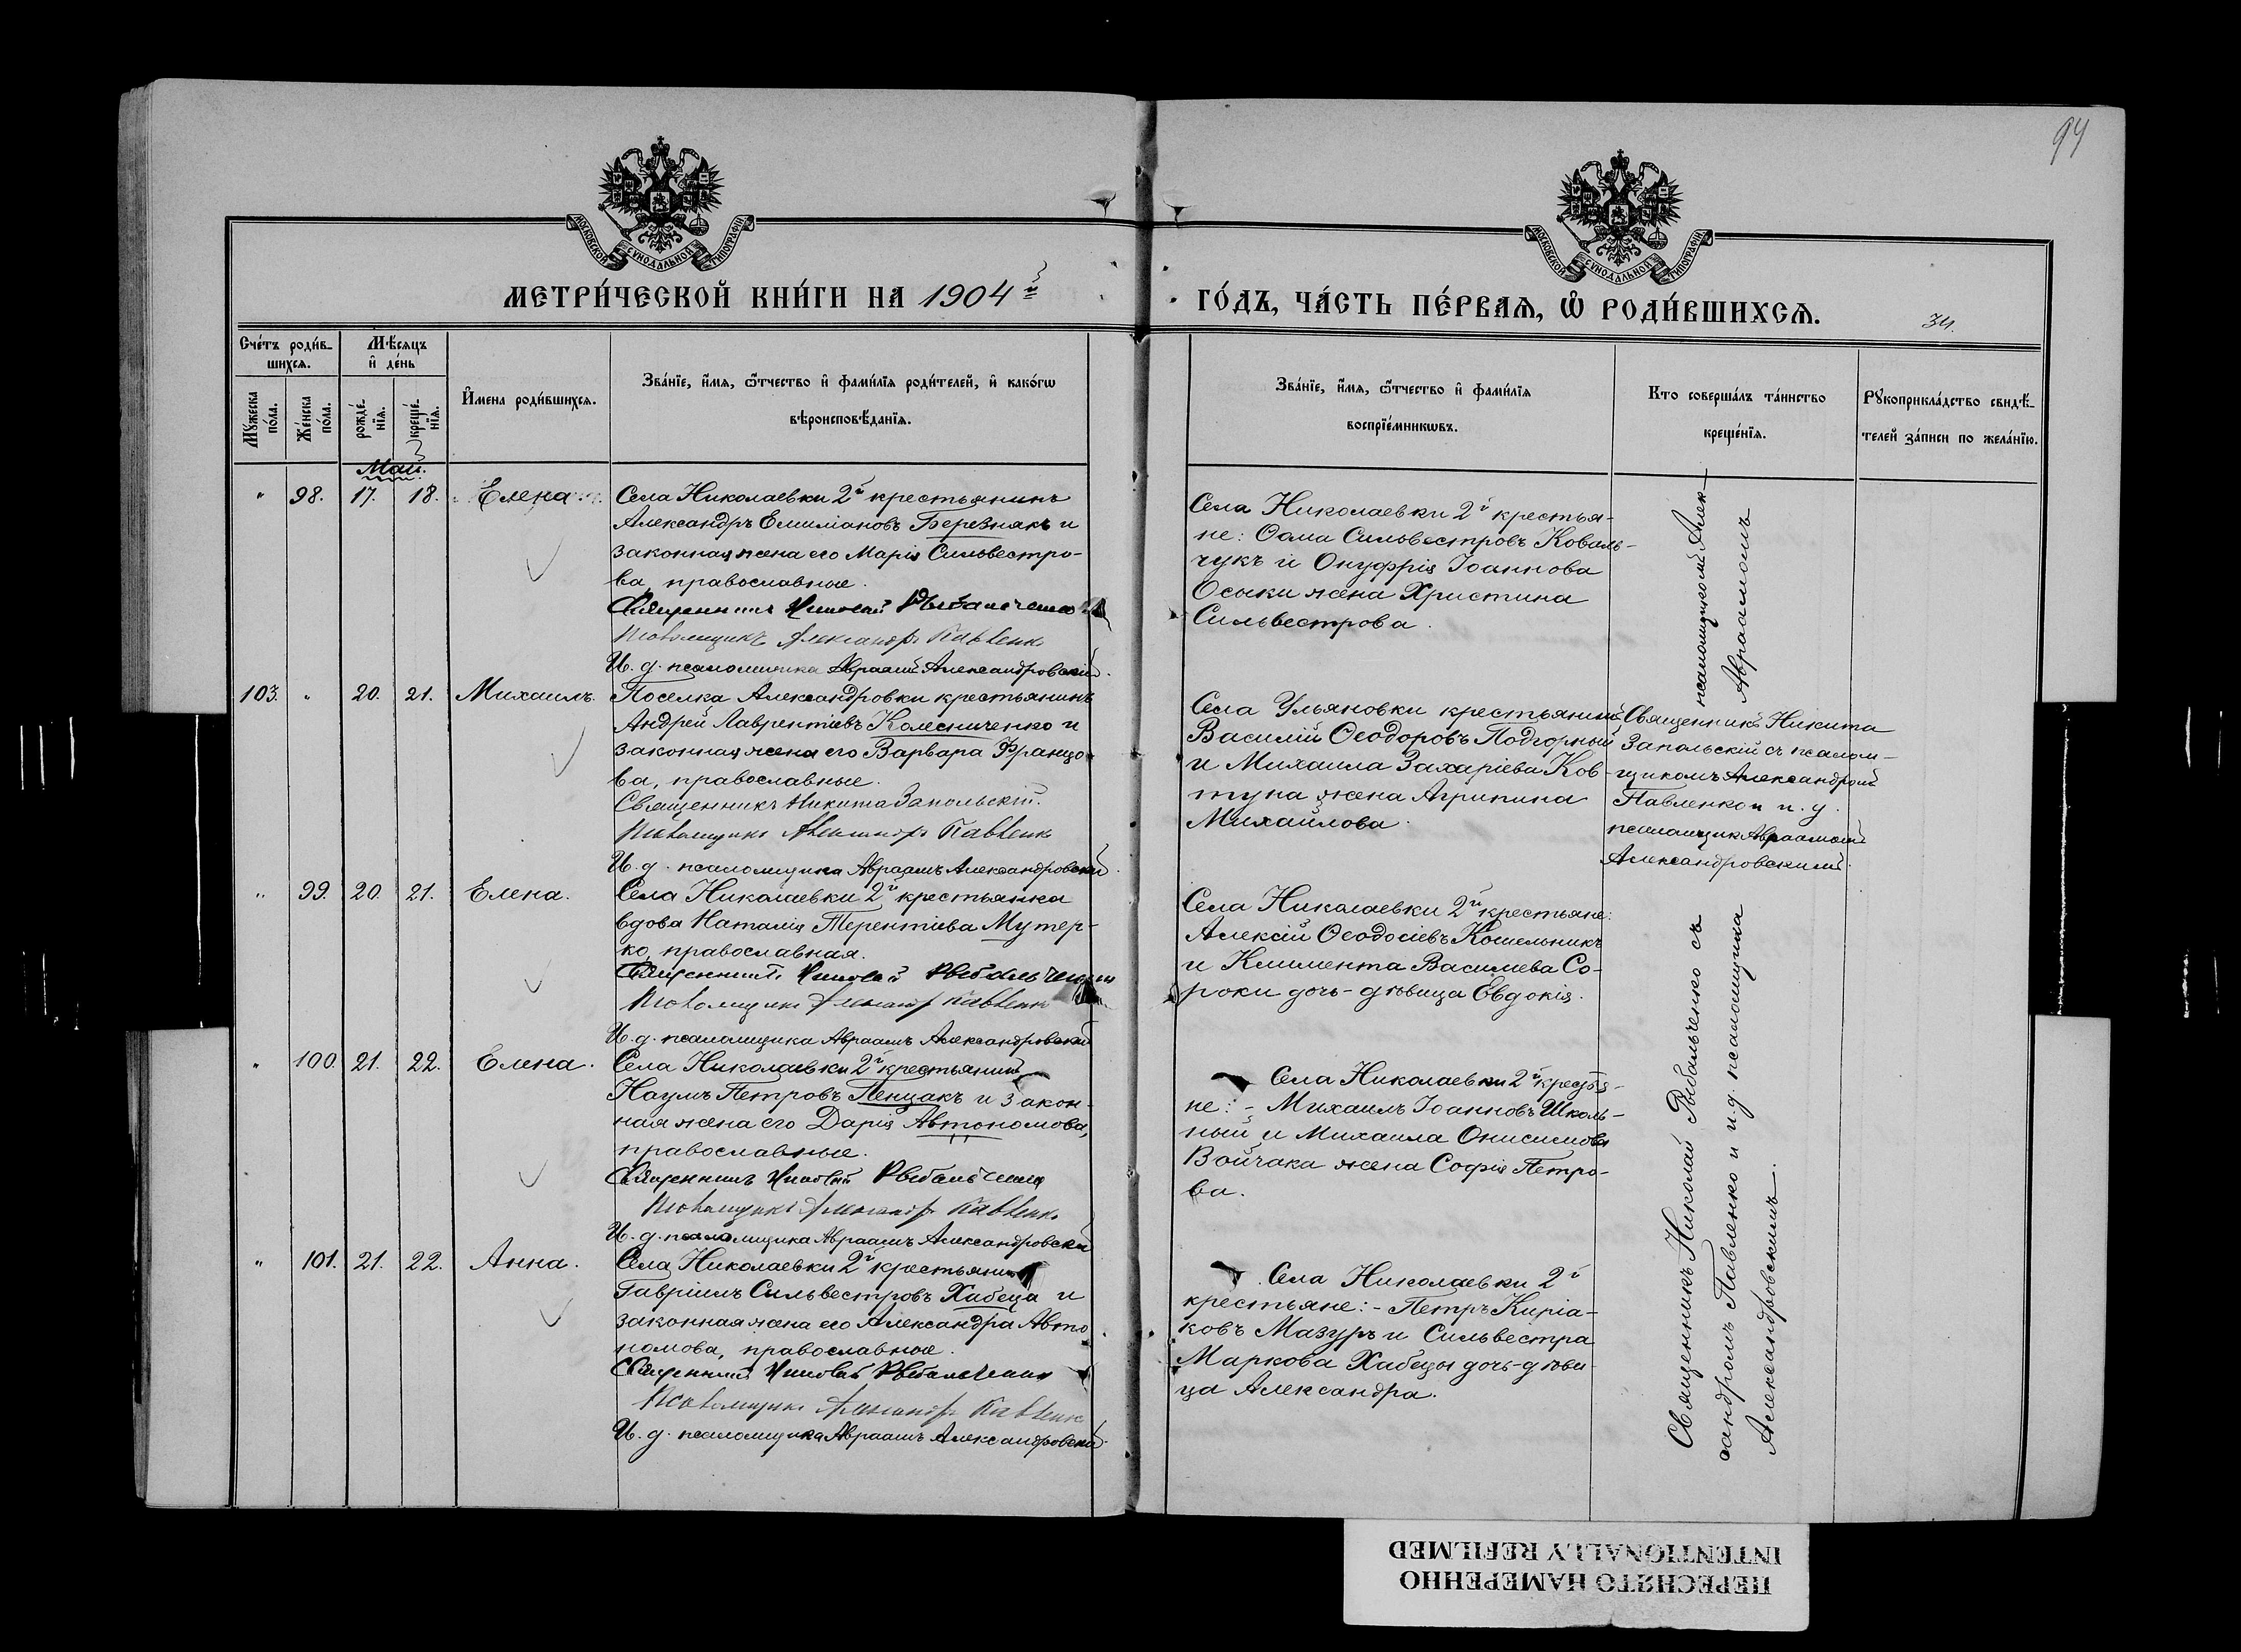 94
МОСКОВСКОЙ СУНОДАЛЬНОЙ ТИПОГРАФІИ
МОСКОВСКОЙ СУНОДАЛЬНОЙ ТИПОГРАФІИ
МЕТРИ́ЧЕСКОЙ КНИ́ГИ НА 1904 й
ГО́ДЪ, ЧА́СТЬ ПЕ́РВАѦ, Ѡ РОДИ́ВШИХСѦ.
34.
Сче́тъ роди́в-
шихсѧ.
Мѣ́сѧцъ
и҆ де́нь
Мꙋ́жеска по́ла.
Же́нска по́ла.
рожде́-
нїѧ.
креще́-
нїѧ.
И҆́мена роди́вшихсѧ.
Зва́нїе, и҆́мѧ, ѻ҆́тчество и҆ фами́лїѧ роди́телей, и҆ како́гѡ
вѣроисповѣ́данїѧ.
Зва́нїе, и҆́мѧ, ѻ҆́тчество и҆ фами́лїѧ
воспрїе́мникѡвъ.
Кто соверша́лъ та́инство
креще́нїѧ.
Рꙋкоприкла́дство свидѣ́-
телей за́писи по жела́нїю.
Май.
" 98. 17. 18. Елена.
Села Николаевки 2й крестьянинъ
Александръ Емиліановъ Березнякъ и
законная жена его Марія Сильвестро-
ва, православные.
Священникъ Николай Рыбальченко
Псаломщикъ Александръ Павленко
И. д. псаломщика Авраамъ Александровскій.
Села Николаевки 2й крестья-
не: Ѳома Сильвестровъ Коваль-
чукъ и Онуфрія Іоаннова
Осыки жена Христина
Сильвестрова.
103. " 20. 21. Михаилъ.
Поселка Александровки крестьянинъ
Андрей Лаврентіевъ Колесниченко и
законная жена его Варвара Францо-
ва, православные.
Священникъ Никита Запольскій.
Псаломщикъ Александръ Павленко
И. д. псаломщика Авраамъ Александровскій.
Села Ульяновки крестьянинъ
Василій Ѳеодоровъ Подгорный
и Михаила Захаріева Ков-
туна жена Агрипина
Михайлова.
Священникъ Никита
Запольскій съ псалом-
щикомъ Александромъ
Павленко и и. д.
псаломщик Авраамомъ
Александровскимъ.
" 99. 20. 21. Елена.
Села Николаевки 2й крестьянка
вдова Наталія Терентіева Мутер-
ко, православная.
Священникъ Николай Рыбальченко
Псаломщикъ Александръ Павленко
И. д. псаломщика Авраамъ Александровскій
Села Николаевки 2й крестьяне:
Алексій Ѳеодосіевъ Кошельникъ
и Климента Василіева Со-
роки дочь-дѣвица Евдокія.
" 100. 21. 22. Елена.
Села Николаевки 2й крестьянинъ
Наумъ Петровъ Пенцакъ и закон-
ная жена его Дарія Автономова,
православные.
Священникъ Николай Рыбальченко
Псаломщикъ Александръ Павленко
И. д. псаломщика Авраамъ Александровскій
Села Николаевки 2й крестья-
не: - Михаилъ Іоанновъ Школь-
ный и Михаила Онисимова
Войчака жена Софія Петро-
ва.
" 101. 21. 22. Анна.
Села Николаевки 2й крестьянинъ
Гавріилъ Сильвестровъ Хабеца и
законная жена его Александра Авто-
номова, православные.
Священникъ Николай Рыбальченко
Псаломщикъ Александръ Павленко
И. д. псаломщика Авраамъ Александровскій.
Села Николаевки 2й
крестьяне: - Петръ Киріа-
ковъ Мазуръ и Сильвестра
Маркова Хабецы дочь-дѣви-
ца Александра.
Священникъ Николай Рыбальченко съ псаломщикомъ Алек-
сандромъ Павленко и и. д. псаломщика Авраамомъ
Александровскимъ.
ПЕРЕСНЯТО НАМЕРЕННО
INTENTIONALLY REFILMED